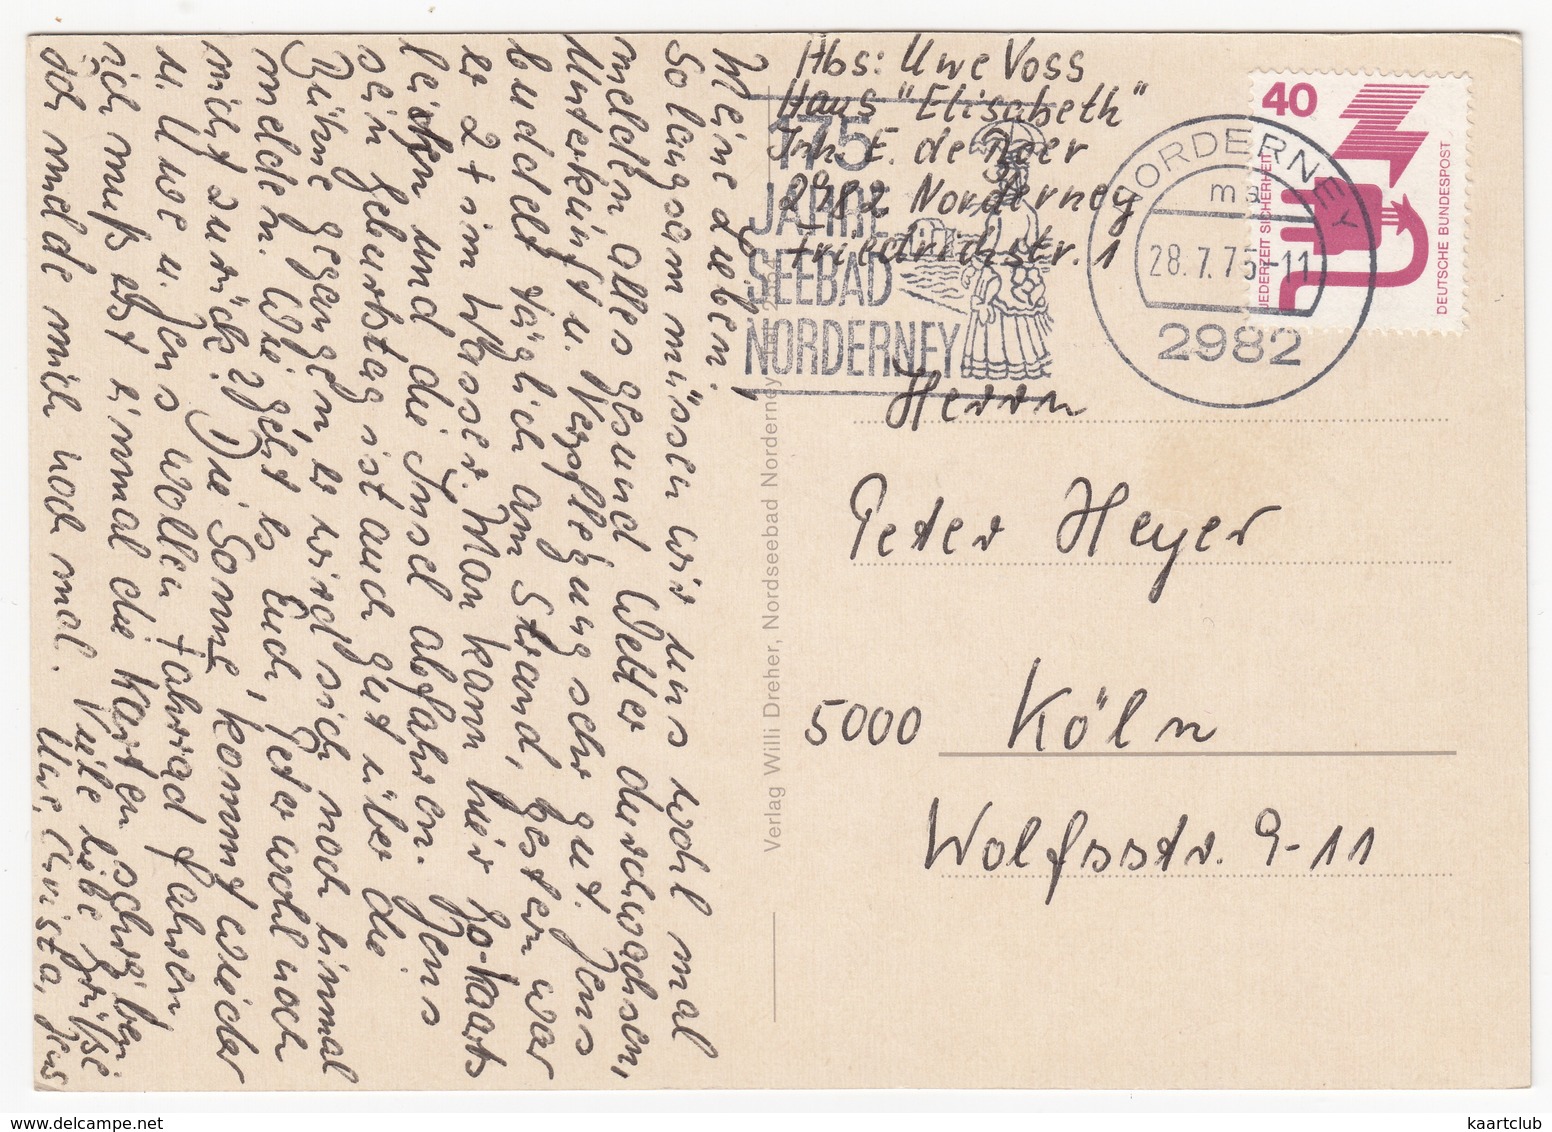 Meine Lieben!
Langsam müssen wir uns wohl mal
melden, alles gesund, Wetter durchwachsen,
Unterkunft u. Verpflegung sehr gut. Jens
buddelt täglich am Strand, gestern war
er 2 x im Wasser. Man kann hier Go-Kaarts
leihen und die Insel abfahren. Jens
sein Geburtstag ist auch gut über die
Bühne gegangen, er wird sich noch einmal
melden. Wie geht es Euch, Peter wohl noch
nicht zurück? Die Sonne kommt wieder
u. Uwe u. Jens wollen Fahrrad fahren
ich muß erst einmal die Karten schreiben
ich melde mich noch mal. Viele liebe Grüße
Uwe, Christa, Jens
Abs: Uwe Voss
Haus "Elisabeth"
Inh. E. de Boer
2982 Norderney
Friedrichstr. 1
175
JAHRE
SEEBAD
NORDERNEY
NORDERNEY
ma
28.7.75-11
2982
40
JEDERZEIT SICHERHEIT
DEUTSCHE BUNDESPOST
Herrn
Peter Heyer
5000 Köln
Wolfsstr. 9-11
Verlag Willi Dreher, Nordseebad Norderney
kaartclub